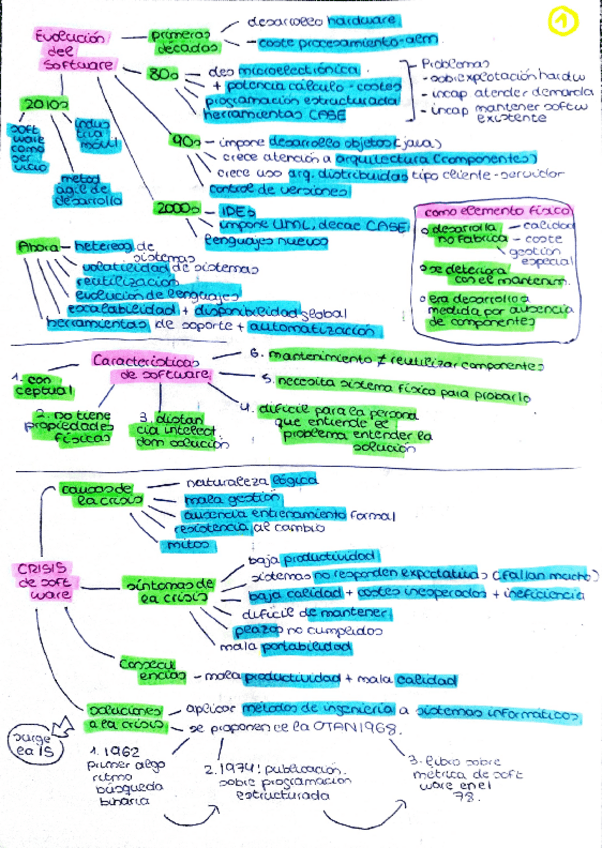 1
Evolución
del
Software
primeras
décadas
desarrollo hardware
- coste procesamiento-alm
80s
des microelectrónica
+ potencia cálculo - costes
programación estructurada
herramientas CASE
Problemas
- sobrexplotación hardw
- incap atender demanda
- incap mantener softw
existente
2010s
soft
ware
como
ser
vicio
indus
tria
móvil
metod
ágil de
desarrollo
90s
- impone desarrollo objetos (java)
crece atención a arquitectura (componentes)
crece uso arq. distribuidas tipo cliente-servidor
control de versiones
2000s
- IDEs
impone UML, decae CASE
lenguajes nuevos
como elemento físico
desarrolla
no fabrica
- calidad
- coste
gestión
especial
se deteriora
con el mantenim.
era desarrollo a
medida por ausencia
de componentes
Ahora - hetereog. de
sistemas
volatilidad de sistemas
reutilización
evolución de lenguajes
escalabilidad + disponibilidad global
herramientas de soporte + automatización
Características
de software
1. con
ceptual
2. no tiene
propiedades
físicas
3. distan
cia intelect
dom solución
4. difícil para la persona
que entiende el
problema entender la
solución
5. necesita sistema físico para probarlo
6. mantenimiento ≠ reutilizar componentes
CRISIS
de soft
ware
causas de
la crisis
naturaleza lógica
mala gestión
ausencia entrenamiento formal
resistencia al cambio
mitos
síntomas de
la crisis
baja productividad
sistemas no responden expectativas (fallan mucho)
baja calidad + costes inesperados + ineficiencia
difícil de mantener
plazos no cumplidos
mala portabilidad
Consecu
encias
- mala productividad + mala calidad
soluciones
a la crisis
aplicar métodos de ingeniería a sistemas informáticos
se proponen el la OTAN 1968.
surge
la IS
1. 1962
primer algo
ritmo
búsqueda
binaria
2. 1974: publicación
sobre programación
estructurada
3. libro sobre
métrica de soft
ware en el
78.